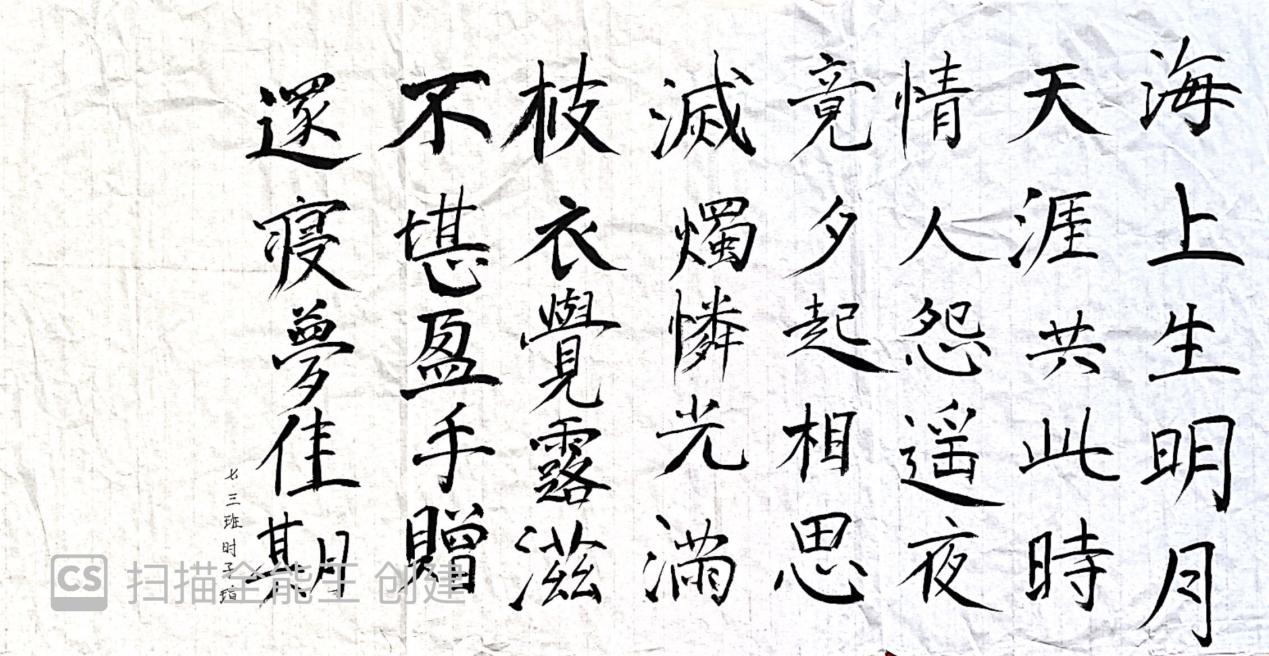 海上生明月
天涯共此時
情人怨遥夜
竟夕起相思
滅燭憐光滿
枝衣覺露滋
不堪盈手贈
還寢夢佳期
七三班时子
CS 扫描全能王 创建